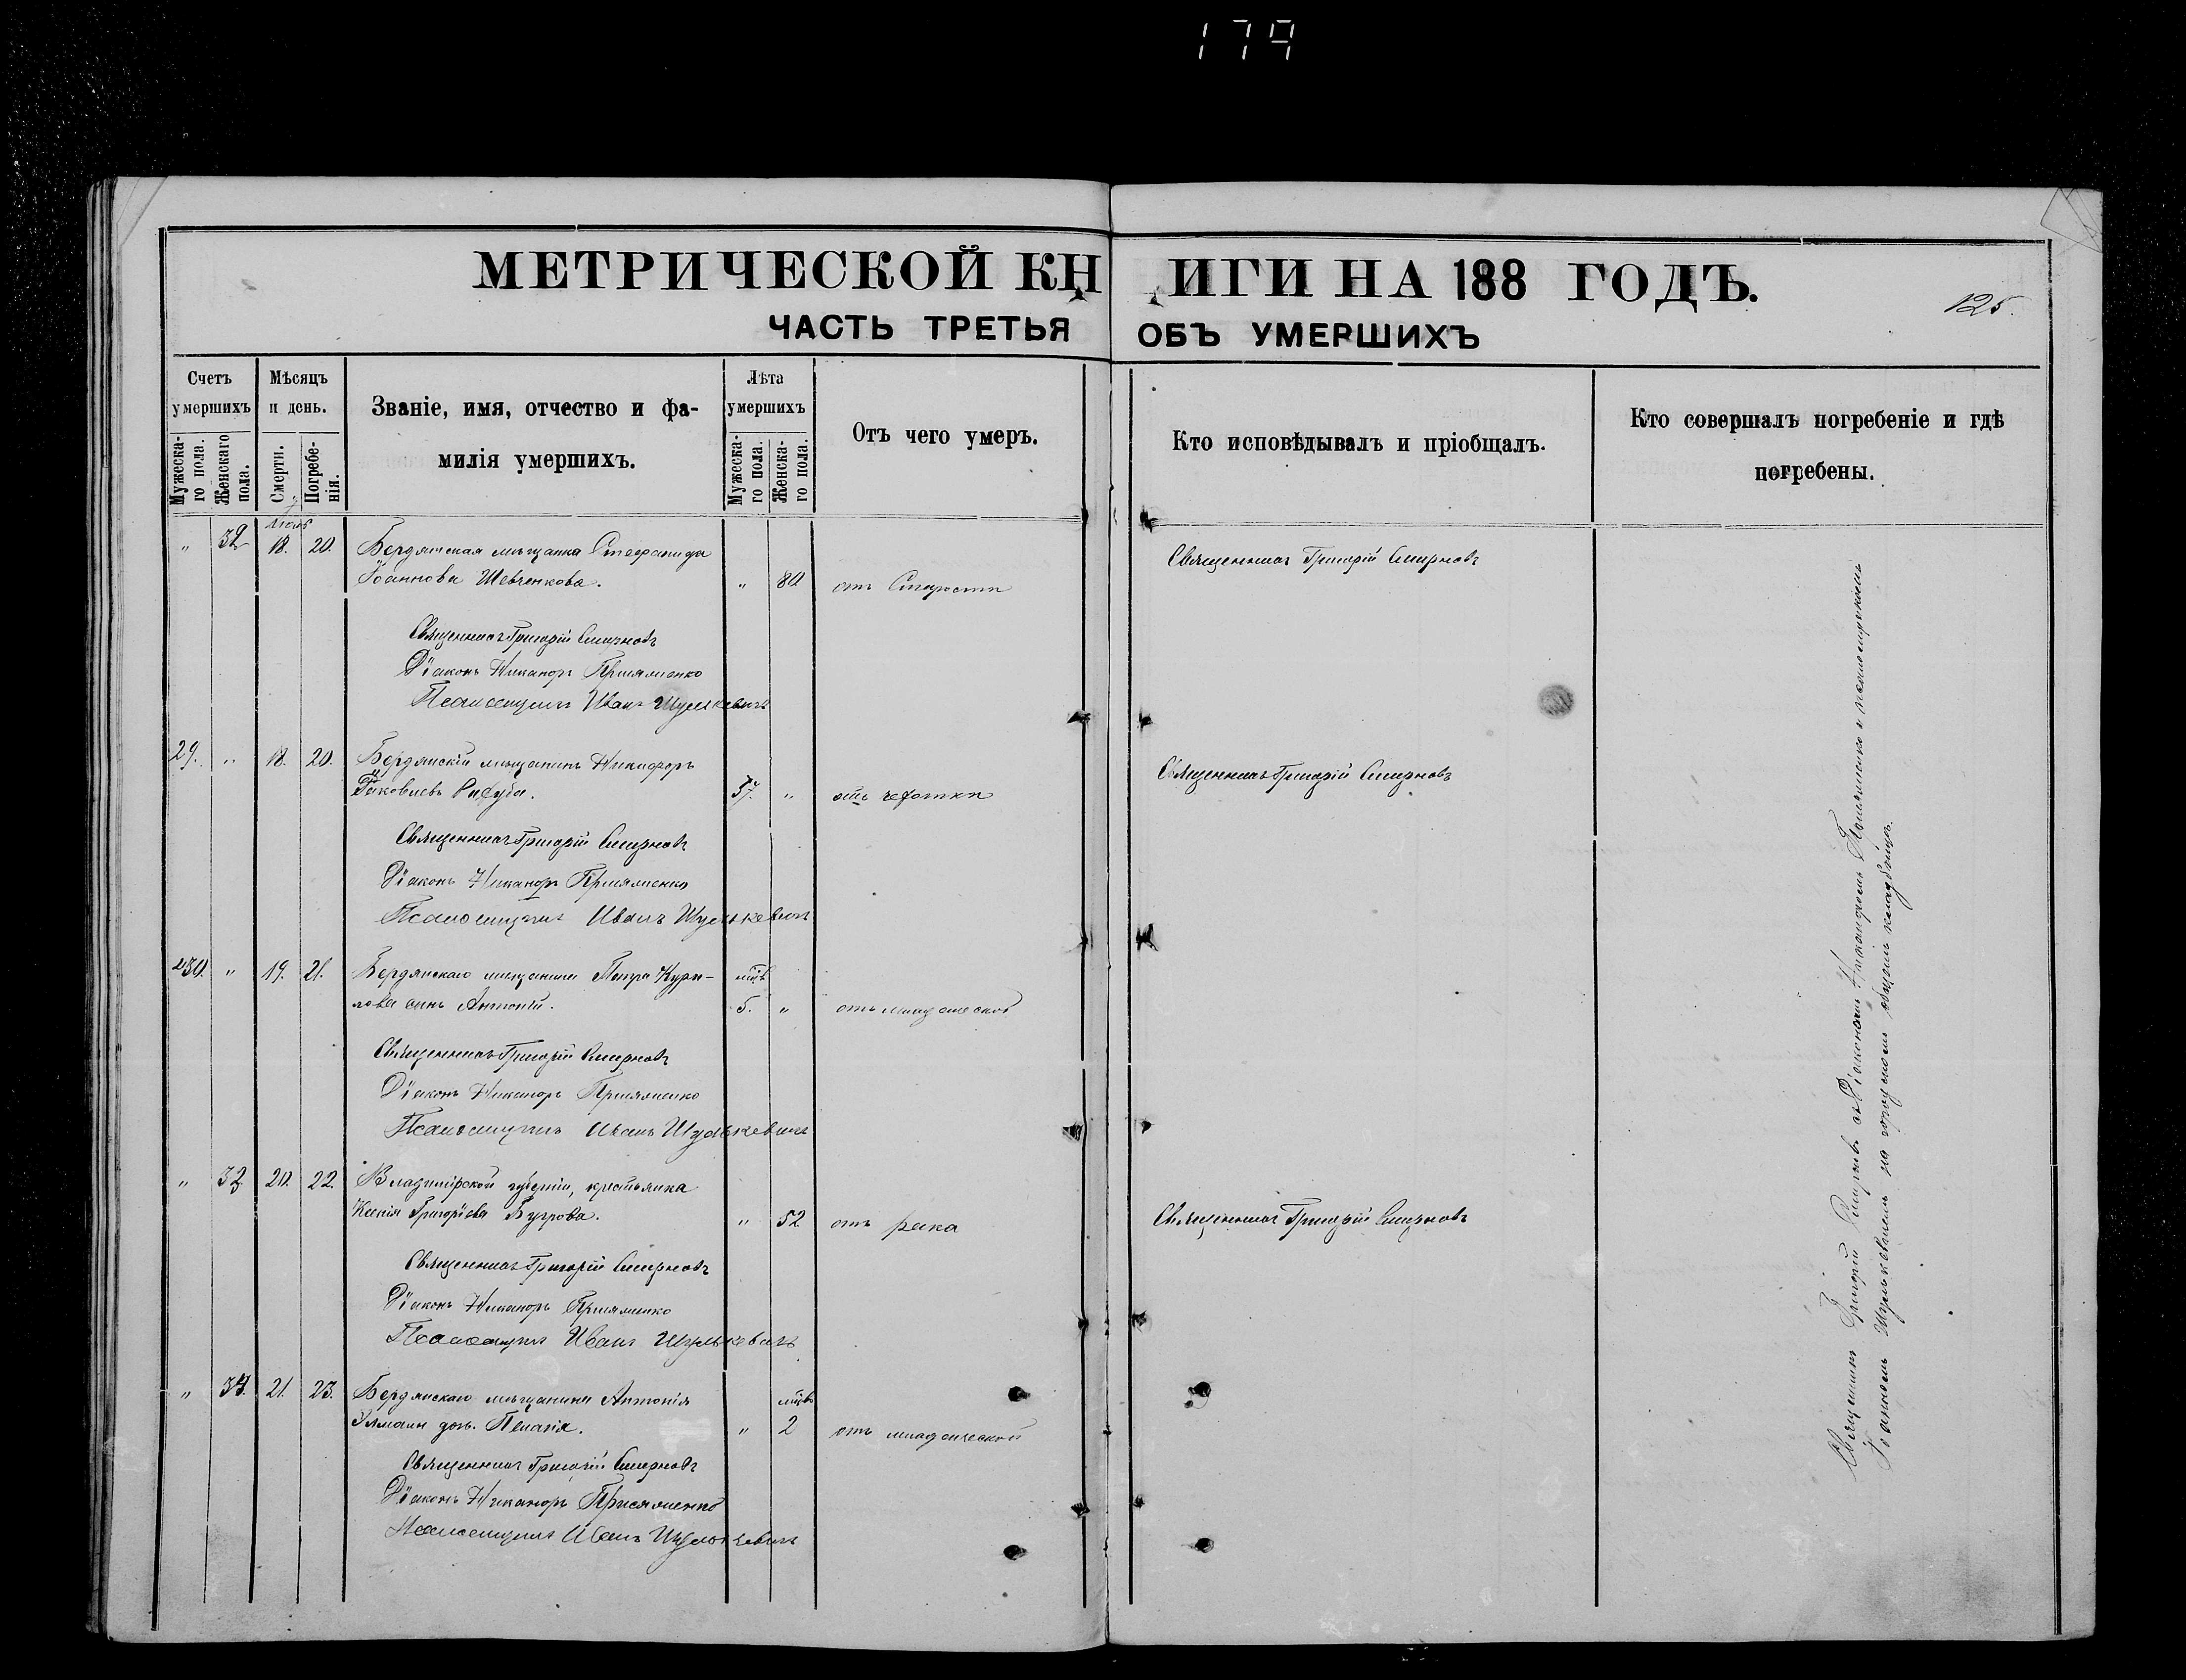 179
МЕТРИЧЕСКОЙ КНИГИ НА 188 ГОДЪ.
125.
ЧАСТЬ ТРЕТЬЯ ОБЪ УМЕРШИХЪ
Счетъ умершихъ
Мужескаго пола.
Женскаго пола.
Мѣсяцъ и день.
Смерти.
Погребенія.
Званіе, имя, отчество и фамилія умершихъ.
Лѣта умершихъ
Мужескаго пола.
Женскаго пола.
Отъ чего умеръ.
Кто исповѣдывалъ и пріобщалъ.
Кто совершалъ погребеніе и гдѣ погребены.
„ 32 18. 20. Бердянская мѣщанка Стефанида
Іоаннова Шевченкова. „ 80 отъ Старости
Священникъ Григорій Смирновъ
Священникъ Григорій Смирновъ
Діаконъ Никаноръ
Псаломщикъ Иванъ Шулькевичъ
29. „ 18. 20. Бердянскій мѣщанинъ Никифоръ
Іаковлевъ 37. „ отъ чахотки
Священникъ Григорій Смирновъ
Священникъ Григорій Смирновъ
Діаконъ Никаноръ
Псаломщикъ Иванъ Шулькевичъ
30. „ 19. 21. Бердянскаго мѣщанина Петра Кури-
лова сынъ Антоній. 5. „ отъ младенческой
Священникъ Григорій Смирновъ
Діаконъ Никаноръ
Псаломщикъ Иванъ Шулькевичъ
„ 33 20. 22. Владимірской губерніи, крестьянка
Ксенія Григоріева Бугрова. „ 52 отъ рака
Священникъ Григорій Смирновъ
Священникъ Григорій Смирновъ
Діаконъ Никаноръ
Псаломщикъ Иванъ Шулькевичъ
„ 34. 21. 23. Бердянскаго мѣщанина Антонія
доч. Пелагія. „ 2 отъ младенческой
Священникъ Григорій Смирновъ
Діаконъ Никаноръ
Псаломщикъ Иванъ Шулькевичъ
Священникъ Григорій Смирновъ съ Діакономъ Никаноромъ и псаломщикомъ
Іоанномъ Шулькевичемъ на городскомъ общемъ кладбищѣ.